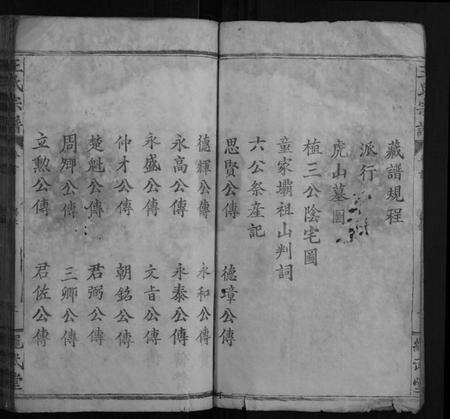 藏譜規程
派行
虎山墓圖
植三公陰宅圖
童家壩祖山判詞
六公祭產記
思賢公傳 德璋公傳
德輝公傳 永和公傳
永高公傳 永泰公傳
永盛公傳 文旨公傳
仲才公傳 朝銘公傳
楚魁公傳 君弼公傳
周卿公傳 三卿公傳
立勲公傳 君佐公傳
王氏宗譜